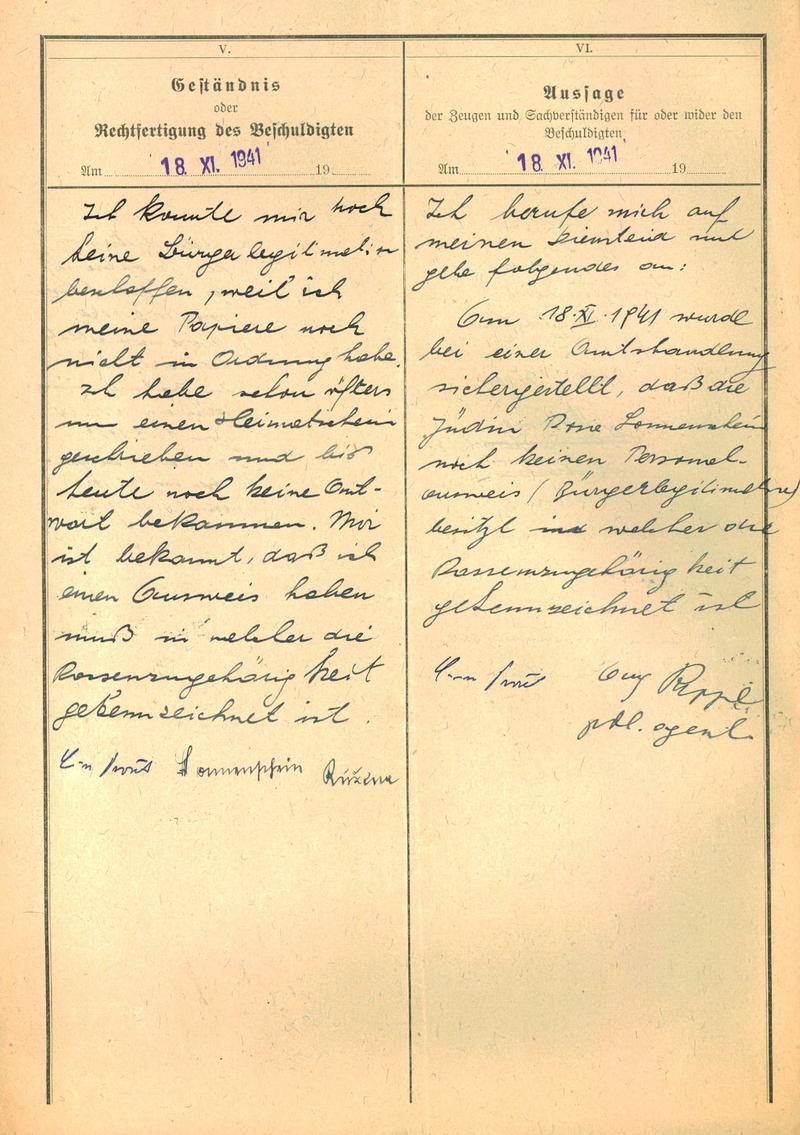 V.
Geständnis
oder
Rechtfertigung des Beschuldigten
Am 18. XI. 1941 19
Ich konnte mir noch
keine Bürgerlegitimation
beschaffen, weil ich
meine Papiere noch
nicht in Ordnung habe.
Ich habe schon öfters
um einen Heimatschein
geschrieben und bis
heute noch keine Ant-
wort bekommen. Mir
ist bekannt, daß ich
einen Ausweis haben
muß in welcher die
Rassenzugehörigkeit
gekennzeichnet ist.
Sonnenschein Růžena
VI.
Aussage
der Zeugen und Sachverständigen für oder wider den
Beschuldigten
Am 18. XI. 1941 19
Ich berufe mich auf
meinen Diensteid und
gebe folgendes an:
Am 18.XI.1941 wurde
bei einer Amtshandlung
sichergestellt, daß die
Jüdin Rosa Sonnenschein
noch keinen Personal-
ausweis (Bürgerlegitimation)
besitzt in welcher die
Rassenzugehörigkeit
gekennzeichnet ist
pol. agent.